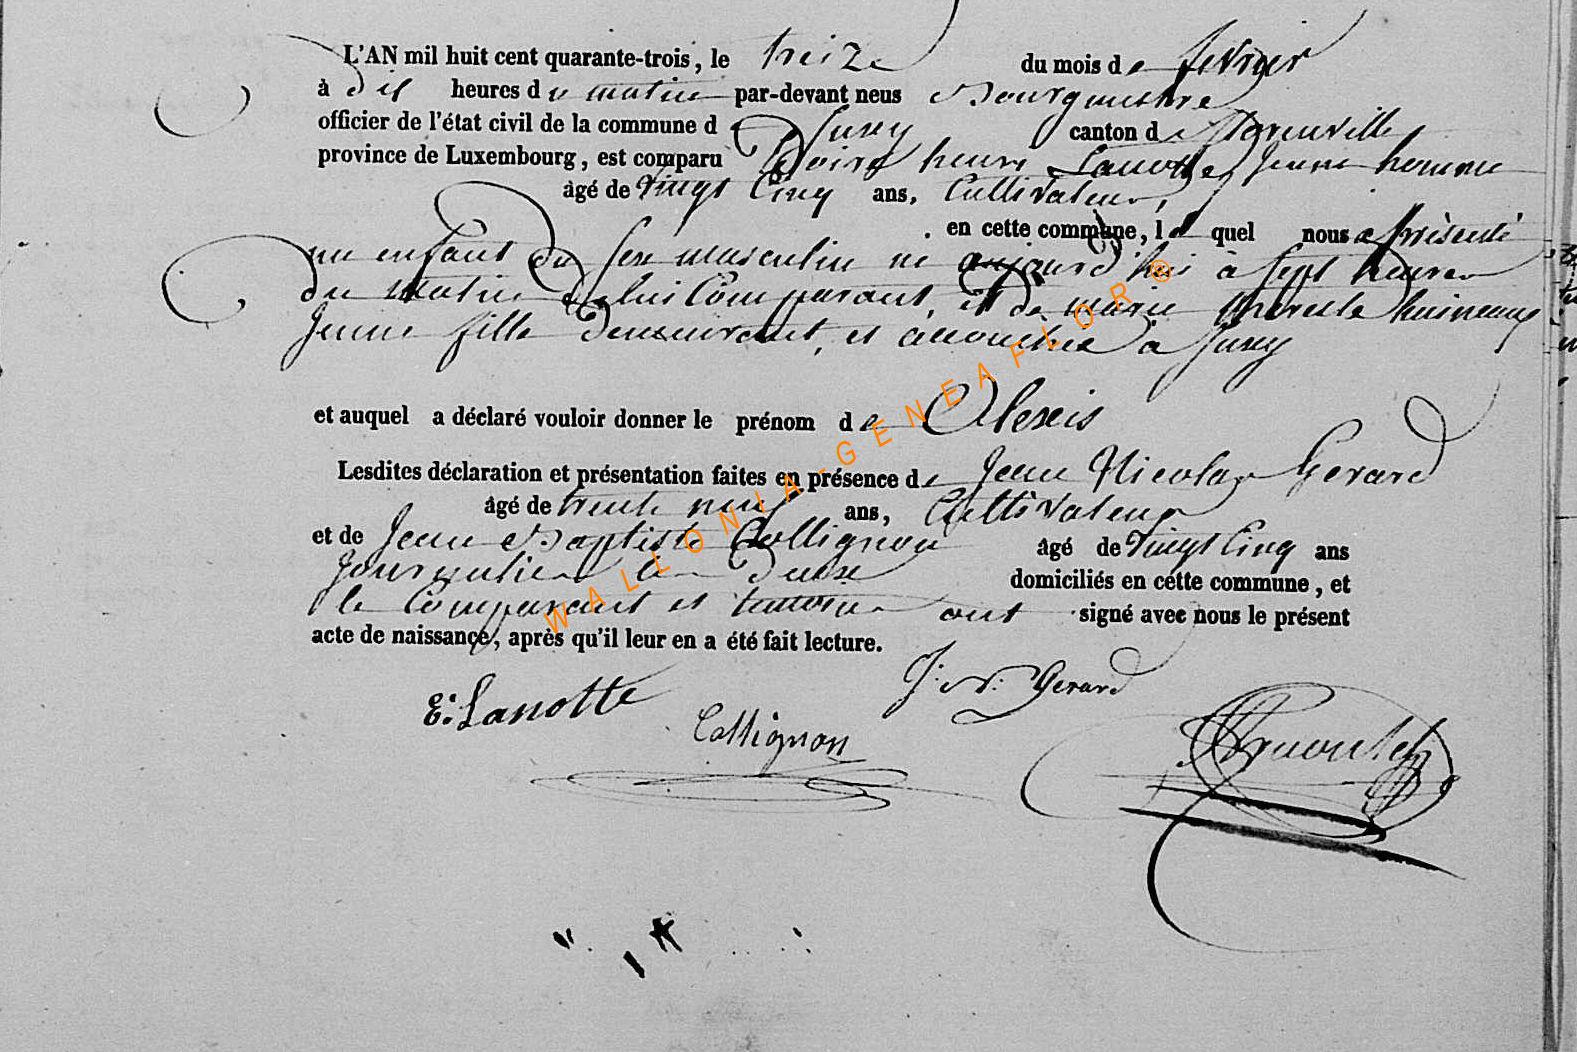 L'AN mil huit cent quarante-trois, le treize du mois de fevrier
à dix heures du matin par-devant nous Bourguemestre
officier de l'état civil de la commune de Juzery canton de
province de Luxembourg, est comparu henry Lanotte jeune homme
âgé de vingt Cinq ans, Cultivateur,
en cette commune, lequel nous a présenté
un enfant du sexe masculin né aujourd'hui à sept heures
du matin de lui Comparant, et de marie therese
jeune fille demeurant, et accouchée à
et auquel a déclaré vouloir donner le prénom de Alexis
Lesdites déclaration et présentation faites en présence de Jean Nicolas Gerard
âgé de trente neuf ans, Cultivateur
et de Jean Baptiste Collignon âgé de vingt Cinq ans
Journalier domiciliés en cette commune, et
le Comparant et temoins ont signé avec nous le présent
acte de naissance, après qu'il leur en a été fait lecture.
J: N: Gerard
E: Lanotte
Collignon
WALLONIA-GENEAFLOR®